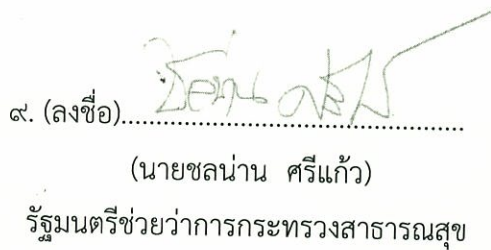 ๙. (ลงชื่อ)....................................................
(นายชลน่าน ศรีแก้ว)
รัฐมนตรีช่วยว่าการกระทรวงสาธารณสุข